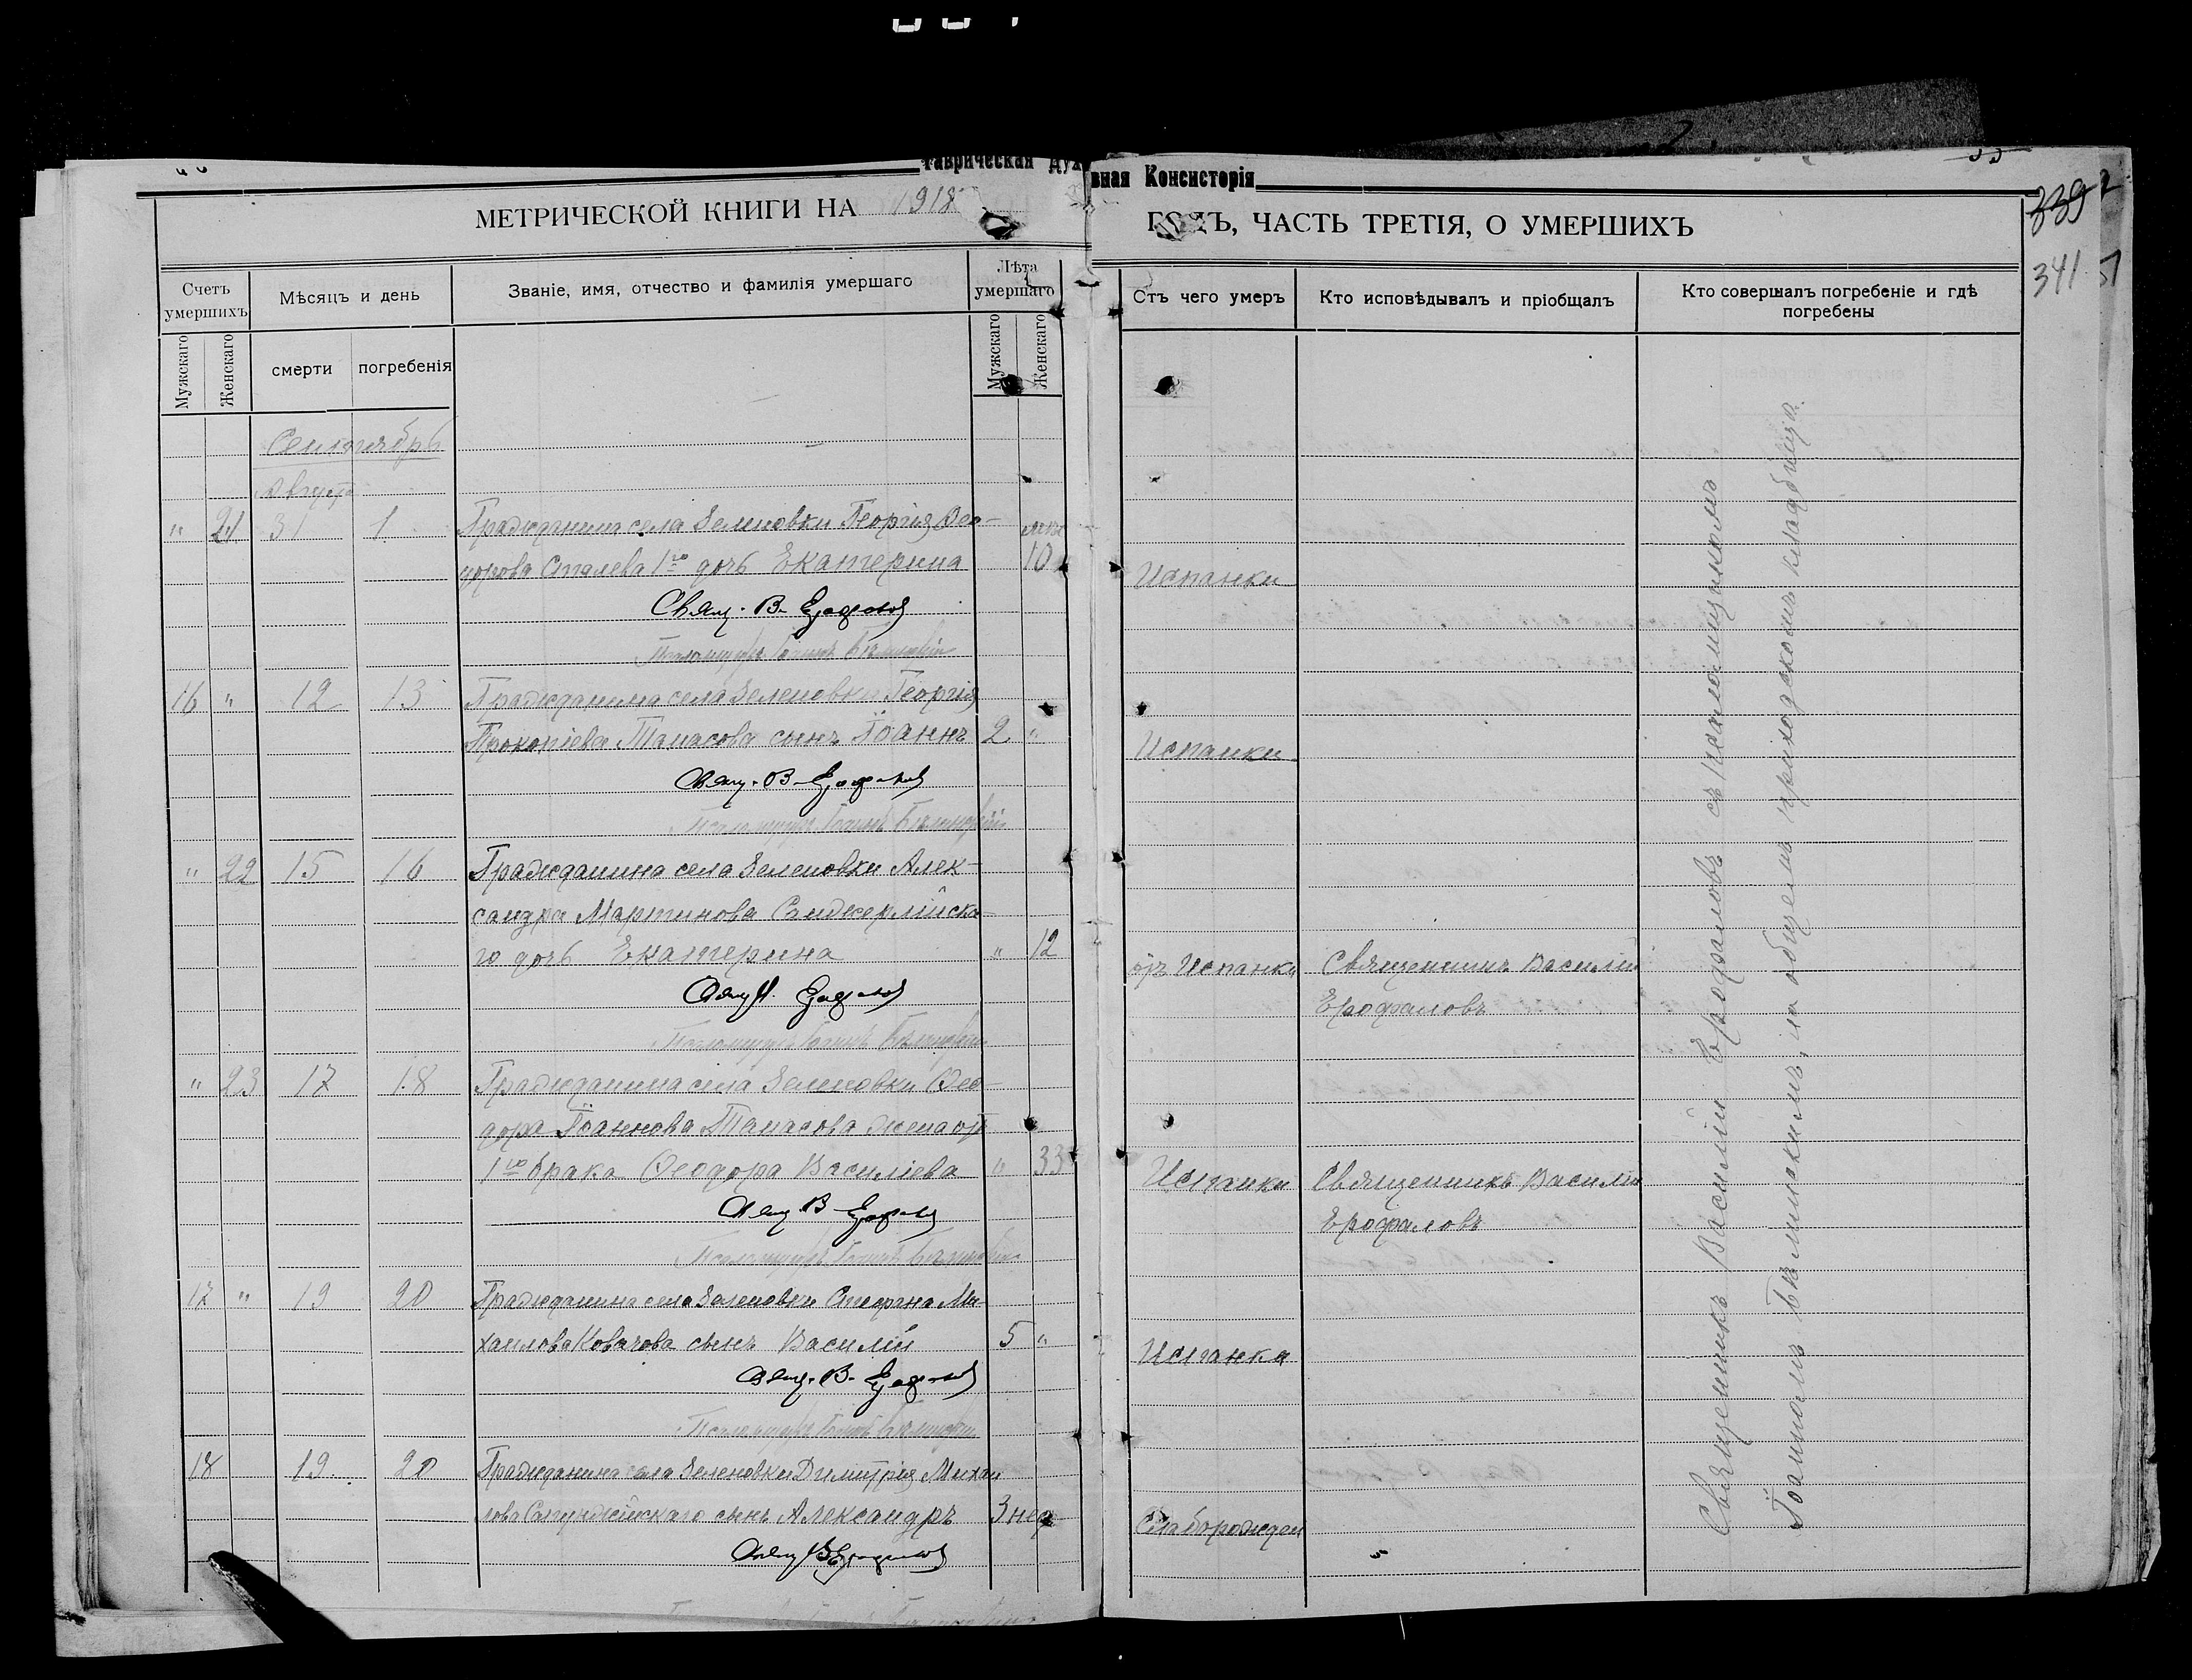 Таврическая Духовная Консисторія
МЕТРИЧЕСКОЙ КНИГИ НА 1918 ГОДЪ, ЧАСТЬ ТРЕТІЯ, О УМЕРШИХЪ
339
341
Счетъ умершихъ
Мѣсяцъ и день
Званіе, имя, отчество и фамилія умершаго
Лѣта умершаго
Мужскаго
Женскаго
смерти
погребенія
Мужскаго
Женскаго
Отъ чего умеръ
Кто исповѣдывалъ и пріобщалъ
Кто совершалъ погребеніе и гдѣ
погребены
Сентябрь
Августа
" 21 31 1 Гражданина села Зеленовки Георгія Ѳео-
дорова Сталева 1го дочь Екатерина 10 Испанки
Свящ. В. Ерофаловъ
Псаломщикъ Іоаннъ Бѣлинскій
16 " 12 13 Гражданина села Зеленовки Георгія
Прокопіева Танасова сынъ Іоаннъ 2 " Испанки
Свящ. В. Ерофаловъ
Псаломщикъ Іоаннъ Бѣлинскій
" 22 15 16 Гражданина села Зеленовки Алек-
сандра Мартинова Санджерлійска-
го дочь Екатерина " 12 отъ Испанки Священникъ Василій
Свящ. Ерофаловъ Ерофаловъ
Псаломщикъ Іоаннъ Бѣлинскій
" 23 17 18 Гражданина села Зеленовки Ѳео-
дора Іоаннова Танасова жена отъ
1го брака Ѳеодора Василіева " 33 Испанки Священникъ Василій
Свящ. В. Ерофаловъ Ерофаловъ
Псаломщикъ Іоаннъ Бѣлинскій
17 " 19 20 Гражданина села Зеленовки Стефана Ми-
хаилова Ковачова сынъ Василій 5 " Испанки
Свящ. В. Ерофаловъ
Псаломщикъ Іоаннъ Бѣлинскій
18 19 20 Гражданина села Зеленовки Димитрія Михаи
лова сынъ Александръ 3 нед Слаборожден
Свящ. В. Ерофаловъ
Священникъ Василій Ерофаловъ съ псаломщикомъ
Іоанномъ Бѣлинскимъ, на общемъ приходскомъ кладбищѣ.